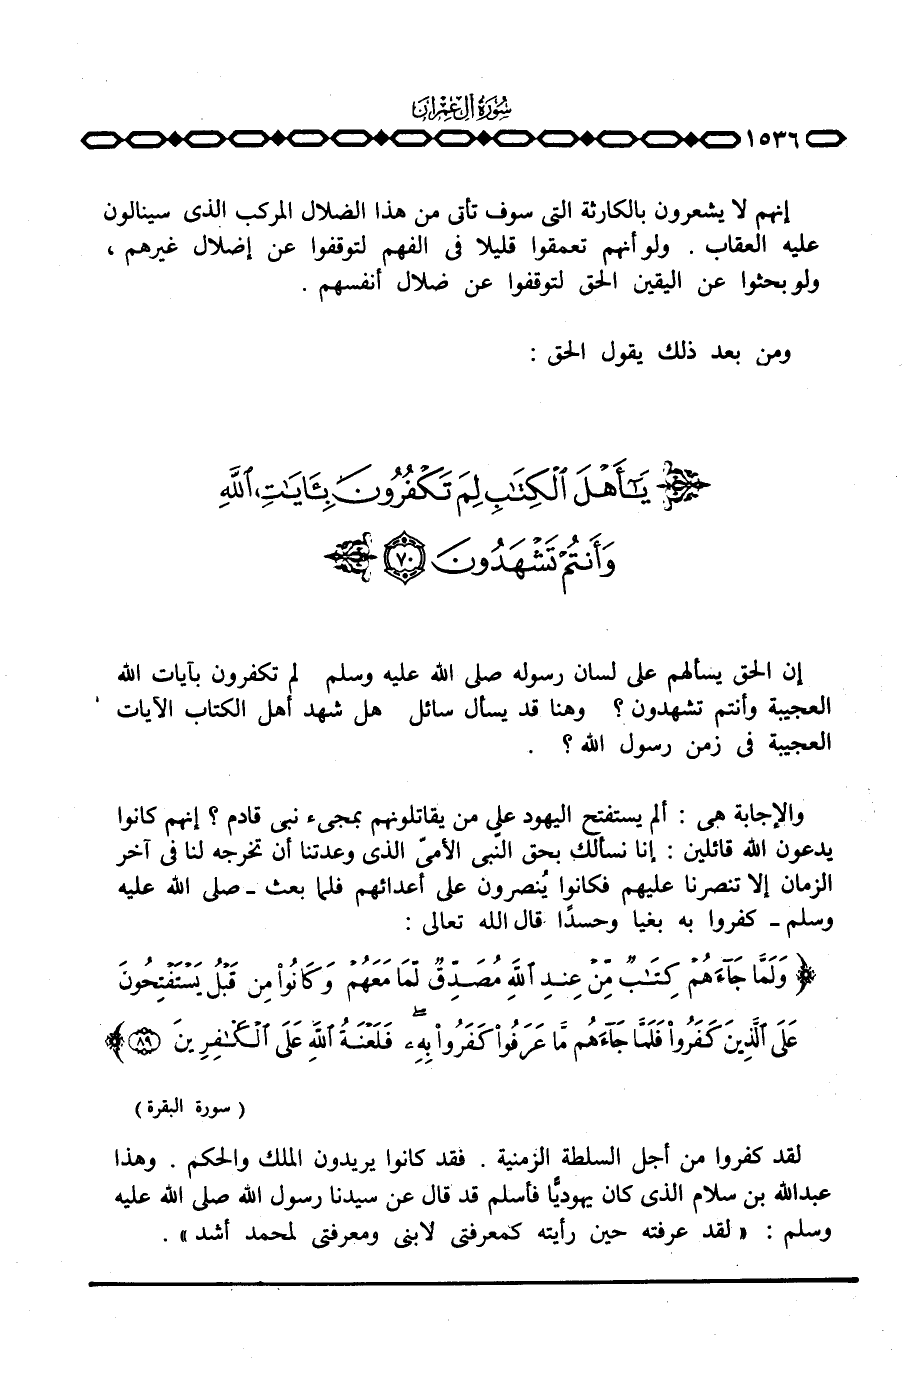 سُورَةُ آلِ عِمْرَانَ
١٥٣٦
إنهم لا يشعرون بالكارثة التى سوف تأتى من هذا الضلال المركب الذى سينالون
عليه العقاب . ولو أنهم تعمقوا قليلا فى الفهم لتوقفوا عن إضلال غيرهم ،
ولو بحثوا عن اليقين الحق لتوقفوا عن ضلال أنفسهم .
ومن بعد ذلك يقول الحق :
يَٰٓأَهْلَ ٱلْكِتَٰبِ لِمَ تَكْفُرُونَ بِـَٔايَٰتِ ٱللَّهِ
وَأَنتُمْ تَشْهَدُونَ ٧٠
إن الحق يسألهم على لسان رسوله صلى الله عليه وسلم لم تكفرون بآيات الله
العجيبة وأنتم تشهدون ؟ وهنا قد يسأل سائل هل شهد أهل الكتاب الآيات
العجيبة فى زمن رسول الله ؟ .
والإجابة هى : ألم يستفتح اليهود على من يقاتلونهم بمجىء نبى قادم ؟ إنهم كانوا
يدعون الله قائلين : إنا نسألك بحق النّبى الأمىّ الذى وعدتنا أن تخرجه لنا فى آخر
الزمان إلا تنصرنا عليهم فكانوا يُنصرون على أعدائهم فلما بعث ـ صلى الله عليه
وسلم ـ كفروا به بغيا وحسدًا قال الله تعالى :
﴿ وَلَمَّا جَآءَهُمْ كِتَٰبٌ مِّنْ عِندِ ٱللَّهِ مُصَدِّقٌ لِّمَا مَعَهُمْ وَكَانُوا۟ مِن قَبْلُ يَسْتَفْتِحُونَ
عَلَى ٱلَّذِينَ كَفَرُوا۟ فَلَمَّا جَآءَهُم مَّا عَرَفُوا۟ كَفَرُوا۟ بِهِۦ ۚ فَلَعْنَةُ ٱللَّهِ عَلَى ٱلْكَٰفِرِينَ ٨٩ ﴾
( سورة البقرة )
لقد كفروا من أجل السلطة الزمنية . فقد كانوا يريدون الملك والحكم . وهذا
عبدالله بن سلام الذى كان يهوديًّا فأسلم قد قال عن سيدنا رسول الله صلى الله عليه
وسلم : « لقد عرفته حين رأيته كمعرفتى لابنى ومعرفتى لمحمد أشد » .